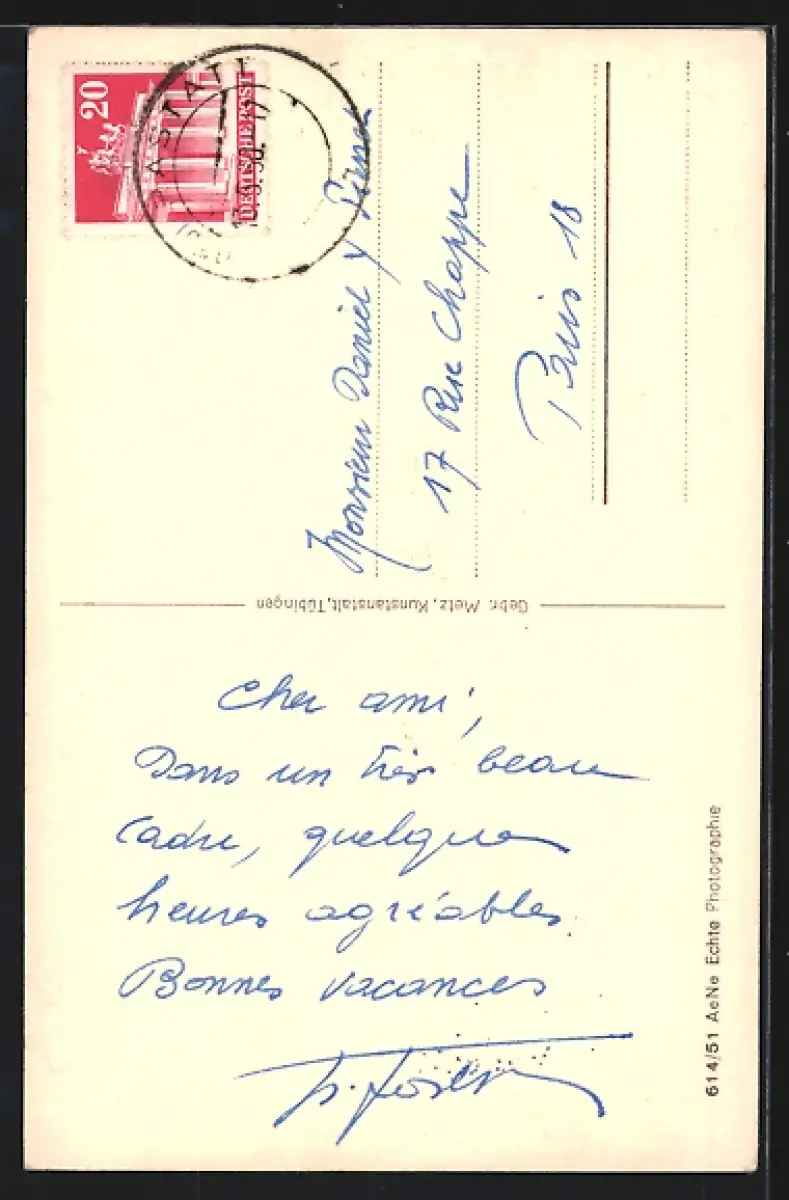 20
DEUTSCHE POST
RASTATT
Monsieur Daniel
17 Rue Chappe
Paris 18
Gebr. Metz, Kunstanstalt, Tübingen
Cher ami,
Dans un très beau
cadre, quelques
heures agréables.
Bonnes vacances
614/51 AeNe Echte Photographie